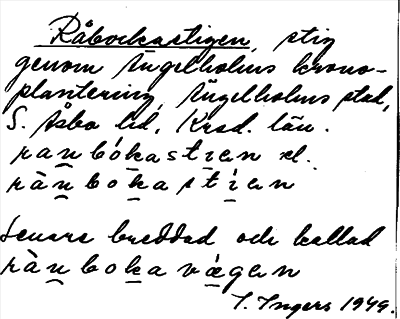 Råbockastigen, stig
genom Ängelholms krono-
plantering, Ängelholms stad,
S. Åsbo hd, Krsd. län.
ranbókastien el.
rànbokastíen
Senare breddad och kallad
rànbokavægen
I. Ingers 1949.